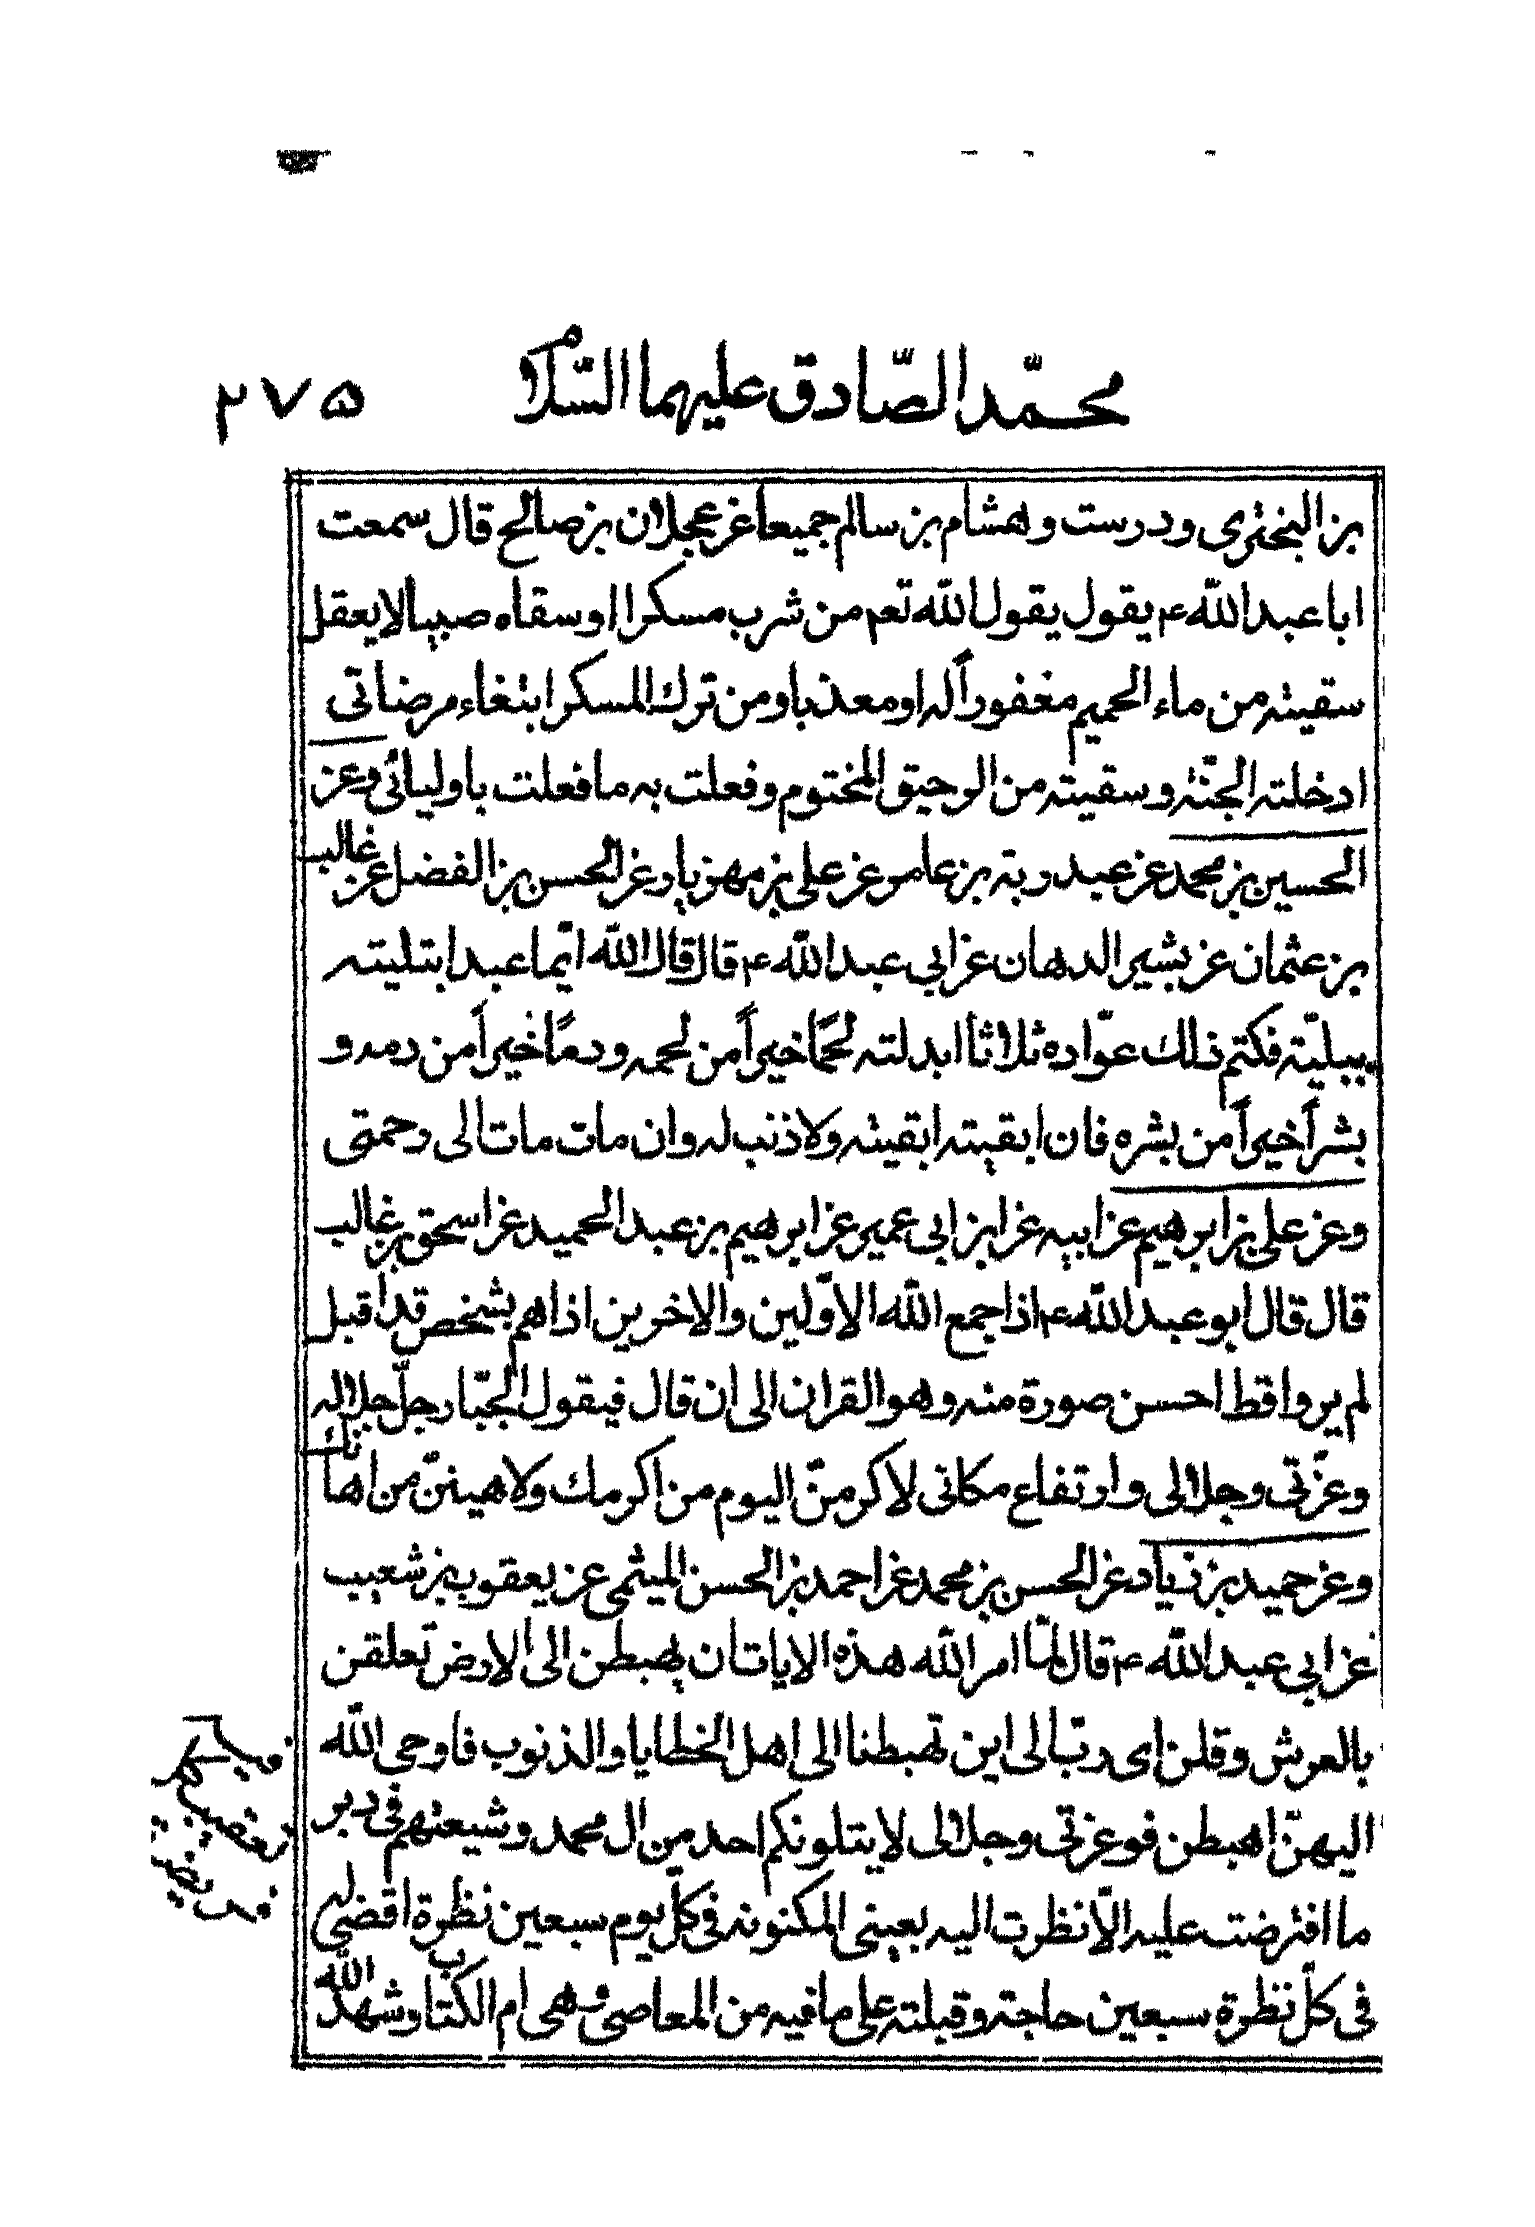 محمّد الصّادق عليهما السّلام ٢٧۵
بن البختري و درست و هشام بن سالم جميعا عن عجلان بن صالح قال سمعت
ابا عبد اللّه ع يقول يقول اللّه تعم من شرب مسكرا او سقاه صبيا لا يعقل
سقيته من ماء الحميم مغفوراً له او معذبا و من ترك المسكر ابتغاء مرضاتى
ادخلته الجنّة و سقيته من الرحيق المختوم و فعلت به ما فعلت باوليائى و عن
الحسين بن محمد عن عبد ربه بن عامر عن على بن مهزيار عن الحسن بن الفضل عن غالب
بن عثمان عن بشير الدهان عن ابى عبد اللّه ع قال قال اللّه ايّما عبد ابتليته
ببليّته فكتم ذلك عوّاده ثلاثا ابدلته لحمًا خيراً من لحمه و دمًا خيراً من دمه و
بشراً خيراً من بشره فان ابقيته ابقيته و لا ذنب له و ان مات مات الى رحمتى
و عن على بن ابرهيم عن ابيه عن ابن ابى عمير عن ابرهيم بن عبد الحميد عن اسحق بن غالب
قال قال ابو عبد اللّه ع اذا جمع اللّه الاوّلين و الاخرين اذا هم بشخص قد اقبل
لم يروا قط احسن صورة منه و هو القران الى ان قال فيقول الجبّار جلّ جلاله
و عزّتى و جلالى و ارتفاع مكانى لاكرمنّ اليوم من اكرمك و لاهيننّ من اهانك
و عن حميد بن زياد عن الحسن بن محمد عن احمد بن الحسن الميثمى عن يعقوب بن شعيب
عن ابى عبد اللّه ع قال لمّا امر اللّه هذه الايات ان يهبطن الى الارض تعلقن
بالعرش و قلن اى ربّ الى اين تهبطنا الى اهل الخطايا و الذنوب فاوحى اللّه
اليهنّ اهبطن فوعزتى و جلالى لا يتلونكم احد من ال محمد و شيعتهم فى دبر
ما افترضت عليه الّا نظرت اليه بعينى المكنونه فى كلّ يوم سبعين نظرة اقضى له
فى كلّ نظرة سبعين حاجة و قبلته على ما فيه من المعاصى و هى ام الكتاب و شهد اللّه